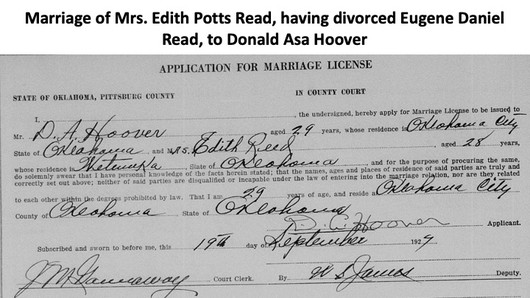 Marriage of Mrs. Edith Potts Read, having divorced Eugene Daniel
Read, to Donald Asa Hoover
APPLICATION FOR MARRIAGE LICENSE
STATE OF OKLAHOMA, PITTSBURG COUNTY IN COUNTY COURT
I, , the undersigned, hereby apply for Marriage License to be issued to
Mr. D. A. Hoover aged 29 years, whose residence is Oklahoma City
State of Oklahoma and Mrs. Edith Reed aged 28 years,
whose residence State of Oklahoma and for the purpose of procuring the same,
do solemnly swear that I have personal knowledge of the facts herein stated; that the names, ages and places of residence of said parties are truly and
correctly set out above; neither of said parties are disqualified or incapable under the law of entering into the marriage relation, nor are they related
to each other within the degrees prohibited by law. That I am 29 years of age, and reside at Oklahoma City
County of Oklahoma State of Oklahoma
D. A. Hoover Applicant.
Subscribed and sworn to before me, this 19th day of September 1929
Court Clerk. By W S James Deputy